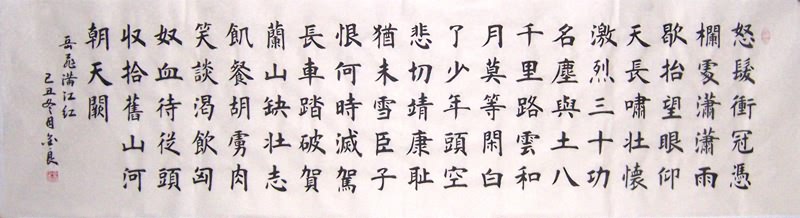 怒髮衝冠憑
欄處瀟瀟雨
歇抬望眼仰
天長嘯壯懷
激烈三十功
名塵與土八
千里路雲和
月莫等閑白
了少年頭空
悲切靖康耻
猶未雪臣子
恨何時滅駕
長車踏破賀
蘭山缺壯志
飢餐胡虜肉
笑談渴飲匈
奴血待從頭
收拾舊山河
朝天闕
岳飛滿江红
己丑冬月金良